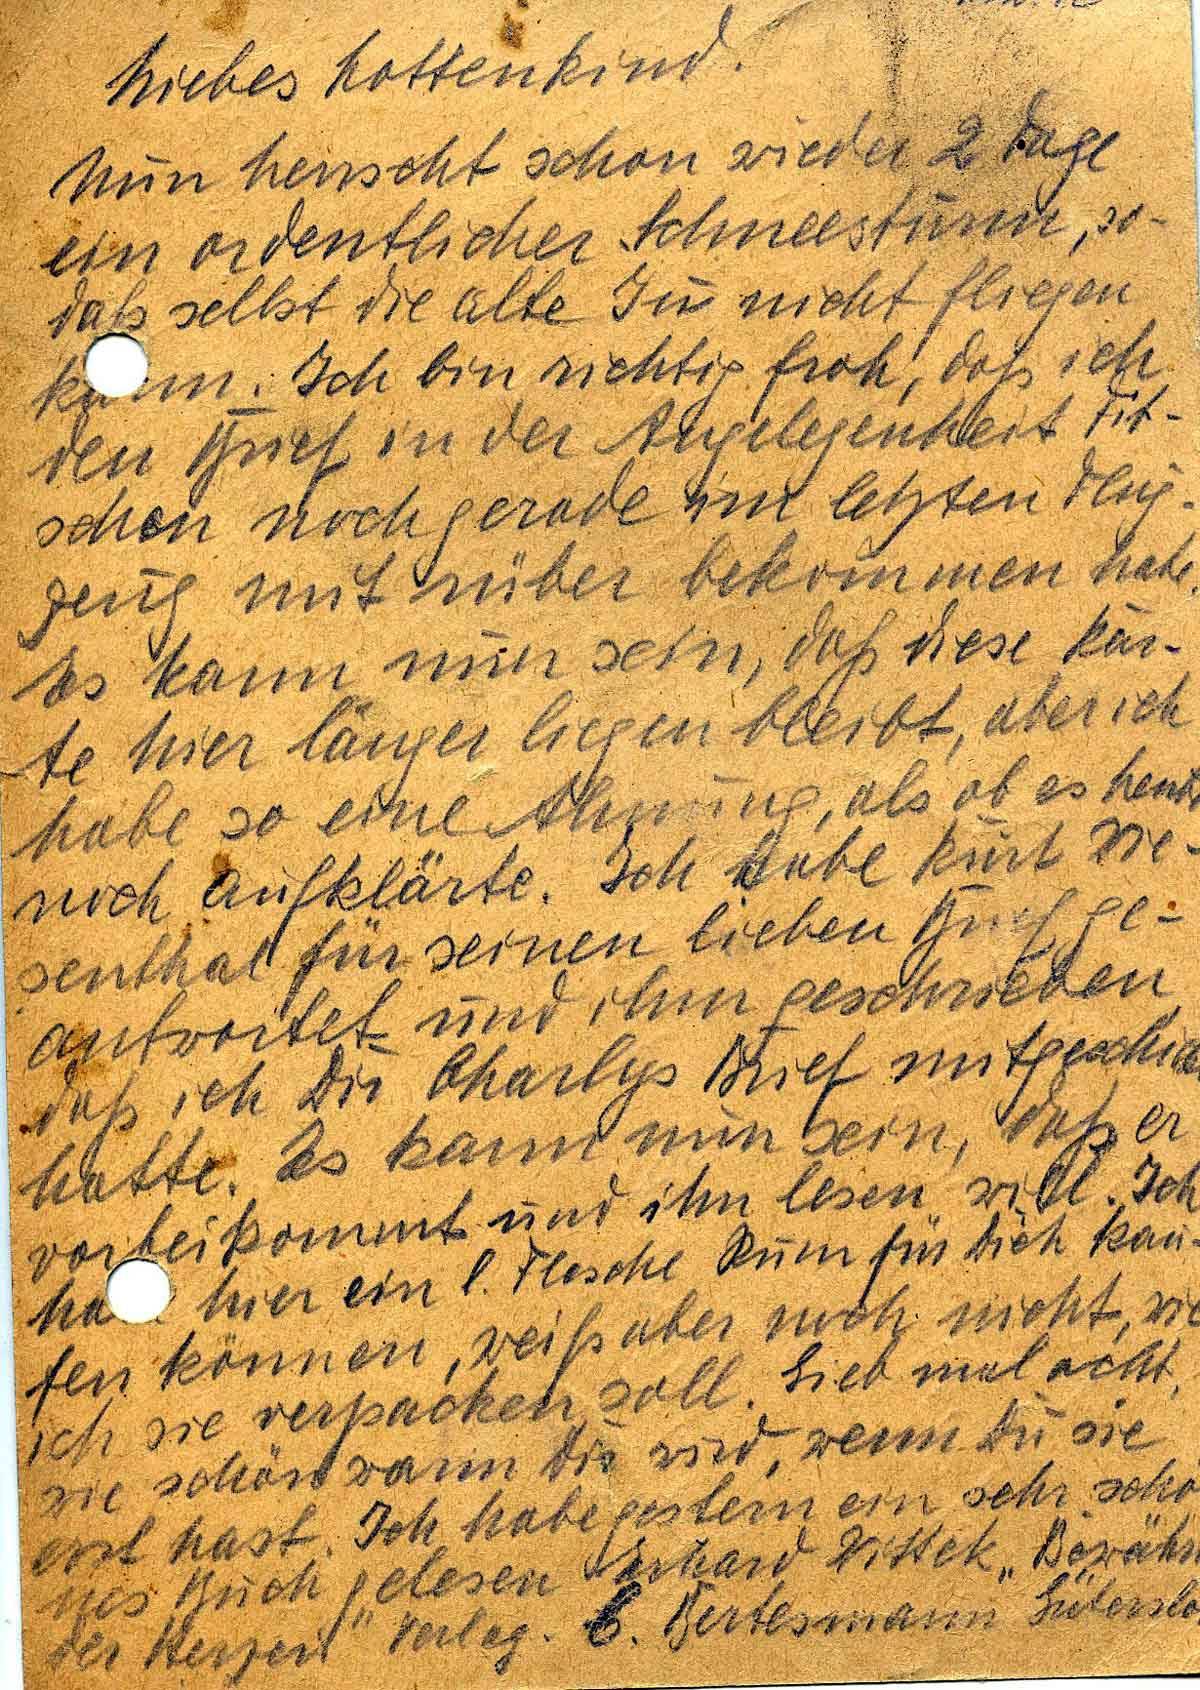 Liebes Lottenkind.
Nun herrscht schon wieder 2 Tage
ein ordentlicher Schneesturm, so-
daß selbst die alte Ju nicht fliegen
kann. Ich bin richtig froh, daß ich
den Brief in der Angelegenheit Fit-
schen noch gerade im letzten Flug-
zeug mit rüber bekommen habe.
Es kann nun sein, daß diese Kar-
te hier länger liegen bleibt, aber ich
habe so eine Ahnung, als ob es heute
noch aufklärte. Ich habe Kurt Wie-
senthal für seinen lieben Brief ge-
antwortet und ihm geschrieben,
daß ich Dir Charlys Brief mitgeschickt
hatte. Es kann nun sein, daß er
vorbeikommt und ihn lesen will. Ich
habe hier ein l. Flasche Rum für Dich kau-
fen können, weiß aber noch nicht, wie
ich sie verpacken soll. Gieb mal acht,
wie schön warm Dir wird, wenn Du sie
erst hast. Ich habe gestern ein sehr schö-
nes Buch gelesen Erhard Wittek „Bewährung
der Herzen" Verlag. C. Bertelsmann Gütersloh